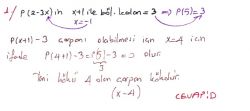 d/ P(2-3x) in x+1 ile böl. kalan = 3 ⇒ P(5) = 3
x=-1
P(x+1) - 3 çarpanı olabilmesi için x=4 için
ifade P(4+1) - 3 = P(5) - 3 = 0 olur.
3
Yani bölü 4 olan çarpan
(x-4)
CEVAP D